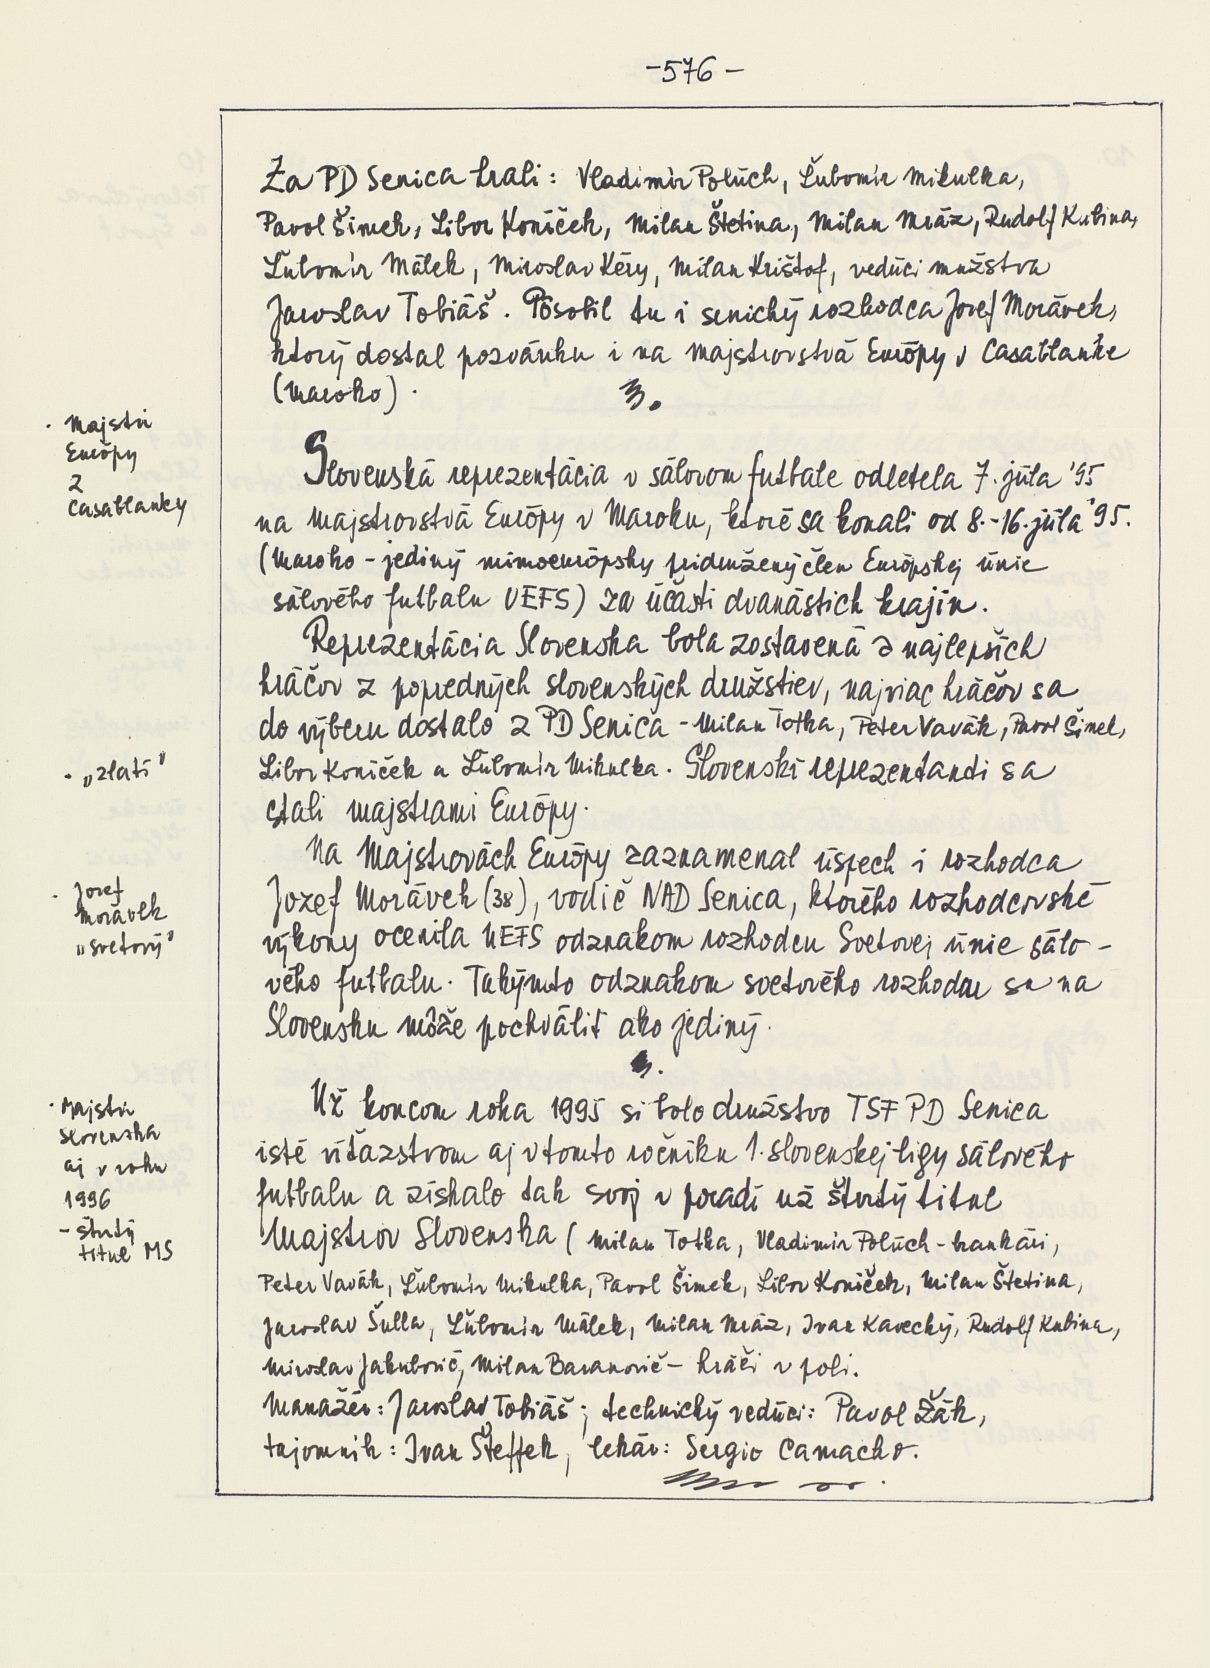 -576-
Za PD Senica hrali: Vladimír Polúch, Ľubomír Mikulka,
Pavol Šimek, Libor Koníček, Milan Štetina, Milan Mráz, Rudolf Kubina,
Ľubomír Málek, Miroslav Kéry, Milan Krištof, vedúci mužstva
Jaroslav Tobiáš. Pôsobil tu i senický rozhodca Jozef Morávek,
ktorý dostal pozvánku i na majstrovstvá Európy v Casablanke
(Maroko).
· Majstri
Európy
z
Casablanky
Slovenská reprezentácia v sálovom futbale odletela 7. júla '95
na majstrovstvá Európy v Maroku, ktoré sa konali od 8.-16. júla '95.
(Maroko - jediný mimoeurópsky pridružený člen Európskej únie
sálového futbalu UEFS) za účasti dvanástich krajín.
Reprezentácia Slovenska bola zostavená z najlepších
hráčov z popredných slovenských družstiev, najviac hráčov sa
do výberu dostalo z PD Senica - Milan Totka, Peter Vavák, Pavol Šimek,
Libor Koníček a Ľubomír Mikulka. Slovenskí reprezentanti sa
stali majstrami Európy.
· „zlatí"
Na Majstrovách Európy zaznamenal úspech i rozhodca
Jozef Morávek (38), vodič NAD Senica, ktorého rozhodcovské
výkony ocenila UEFS odznakom rozhodcu Svetovej únie sálo-
vého futbalu. Takýmto odznakom svetového rozhodcu sa na
Slovensku môže pochváliť ako jediný.
· Jozef
Morávek
„svetový"
Už koncom roka 1995 si bolo družstvo TSF PD Senica
isté víťazstvom aj v tomto ročníku 1. slovenskej ligy sálového
futbalu a získalo tak svoj v poradí už štvrtý titul
Majstrov Slovenska (Milan Totka, Vladimír Polúch - brankári,
Peter Vavák, Ľubomír Mikulka, Pavol Šimek, Libor Koníček, Milan Štetina,
Jaroslav Šulla, Ľubomír Málek, Milan Mráz, Ivan Kavecký, Rudolf Kubina,
Miroslav Jakubovič, Milan Baranovič - hráči v poli.
Manažér: Jaroslav Tobiáš; technický vedúci: Pavol Žák,
tajomník: Ivan Šteffek, lekár: Sergio Camacho.
· Majstri
Slovenska
aj v roku
1996
- štvrtý
titul MS